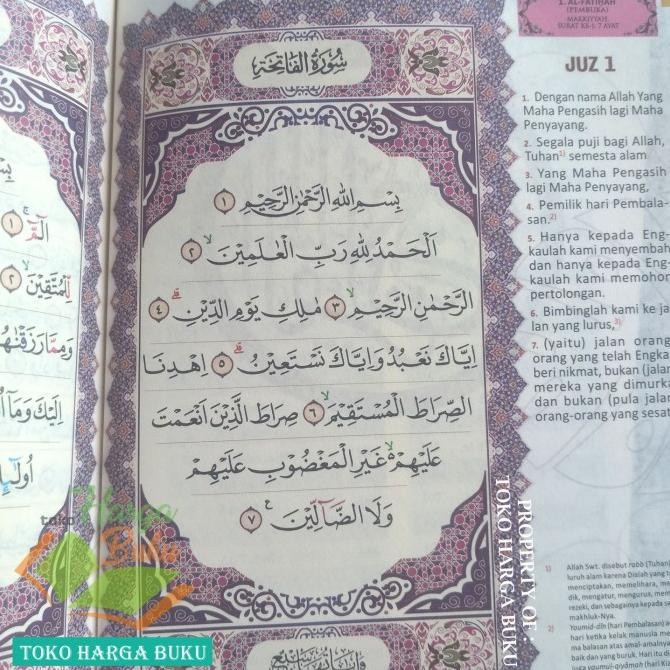 سُوْرَةُ الْفَاتِحَةِ
بِسْمِ اللّٰهِ الرَّحْمٰنِ الرَّحِيْمِ ١
اَلْحَمْدُ لِلّٰهِ رَبِّ الْعٰلَمِيْنَۙ ٢
الرَّحْمٰنِ الرَّحِيْمِۙ ٣ مٰلِكِ يَوْمِ الدِّيْنِۗ ٤
اِيَّاكَ نَعْبُدُ وَاِيَّاكَ نَسْتَعِيْنُۗ ٥ اِهْدِنَا
الصِّرَاطَ الْمُسْتَقِيْمَۙ ٦ صِرَاطَ الَّذِيْنَ اَنْعَمْتَ
عَلَيْهِمْ ەۙ غَيْرِ الْمَغْضُوْبِ عَلَيْهِمْ
وَلَا الضَّاۤلِّيْنَ ࣖ ٧
الۤمّۤ ۚ ١
لِّلْمُتَّقِيْنَۙ ٢
وَمِمَّا رَزَقْنٰهُ
اِلَيْكَ وَمَآ
اُولٰۤىِٕ
1. AL-FATIHAH
(PEMBUKA)
MAKKIYYAH
SURAT KE-1: 7 AYAT
JUZ 1
1. Dengan nama Allah Yang
Maha Pengasih lagi Maha
Penyayang.
2. Segala puji bagi Allah,
Tuhan1) semesta alam
3. Yang Maha Pengasih
lagi Maha Penyayang,
4. Pemilik hari Pembala-
san.2)
5. Hanya kepada Eng-
kaulah kami menyembah
dan hanya kepada Eng-
kaulah kami memohon
pertolongan.
6. Bimbinglah kami ke ja-
lan yang lurus,3)
7. (yaitu) jalan orang
orang yang telah Engka
beri nikmat, bukan (jalan
mereka yang dimurka
dan bukan (pula jalan
orang-orang yang sesat
1) Allah Swt. disebut rabb (Tuhan)
luruh alam karena Dialah yang t
menciptakan, memelihara, me
dik, mengatur, mengurus, mem
rezeki, dan sebagainya kepada se
makhluk-Nya.
2) Yaumid-dīn (hari Pembalasan) a
hari ketika kelak manusia me
ma balasan atas amal-amalnya
baik dan yang buruk. Hari itu d
PROPERTY OF:
TOKO HARGA BUKU
toko
Harga
Buku
TOKO HARGA BUKU